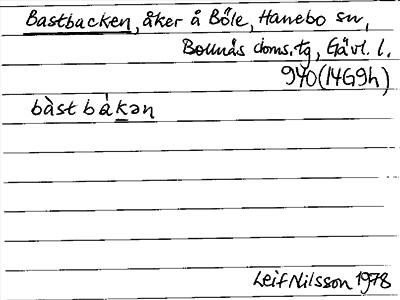 Bastbacken, åker å Böle, Hanebo sn,
Bollnäs doms.tg, Gävl. l.
940 (14G9h)
bàst bákən
Leif Nilsson 1978